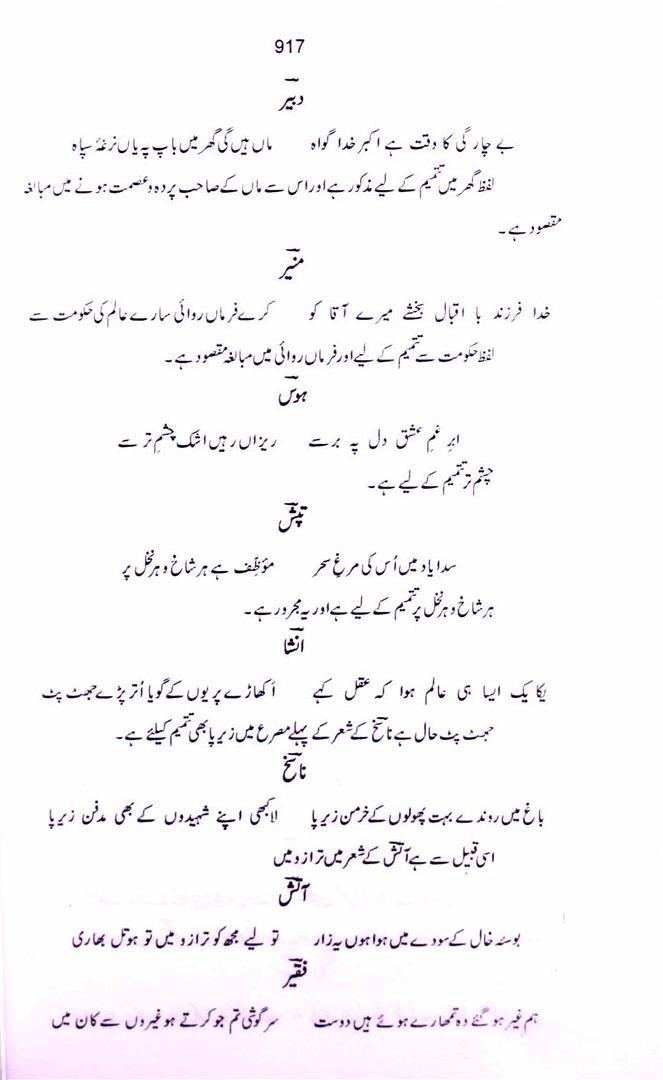 917
دبیر
بے چارگی کا وقت ہے اکبر خدا گواہ ماں ہیں گی گھر میں باپ پہ یاں نرغۂ سپاہ
لفظ گھر میں تتمیم کے لیے مذکور ہے اور اس سے ماں کے صاحب پردہ و عصمت ہونے میں مبالغہ
مقصود ہے۔
منیر
خدا فرزند با اقبال بخشے میرے آقا کو کرے فرماں روائی سارے عالم کی حکومت سے
لفظ حکومت سے تتمیم کے لیے اور فرماں روائی میں مبالغہ مقصود ہے۔
ہوس
ابرِ غمِ عشق دل پہ برسے ریزاں رہیں اشک چشمِ تر سے
چشم تر تتمیم کے لیے ہے۔
تپش
سدا یاد میں اُس کی مرغِ سحر مؤظّف ہے ہر شاخ و ہر نخل پر
ہر شاخ و ہر نخل پر تتمیم کے لیے ہے اور یہ مجرور ہے۔
انشا
یکایک ایسا ہی عالم ہوا کہ عقل کہے اُکھاڑے پریوں کے گویا اُتر پڑے جھٹ پٹ
جھٹ پٹ حال ہے ناسخ کے شعر کے پہلے مصرع میں زیر پا بھی تتمیم کیلئے ہے۔
ناسخ
باغ میں روندے بہت پھولوں کے خرمن زیر پا لا کبھی اپنے شہیدوں کے بھی مدفن زیر پا
اسی قبیل سے ہے آتش کے شعر میں ترازو میں
آتش
بوسۂ خال کے سودے میں ہوا ہوں یہ زار تولیے مجھ کو ترازو میں تو ہو تل بھاری
فقیر
ہم غیر ہو گئے وہ تمھارے ہوئے ہیں دوست سرگوشی تم جو کرتے ہو غیروں سے کان میں